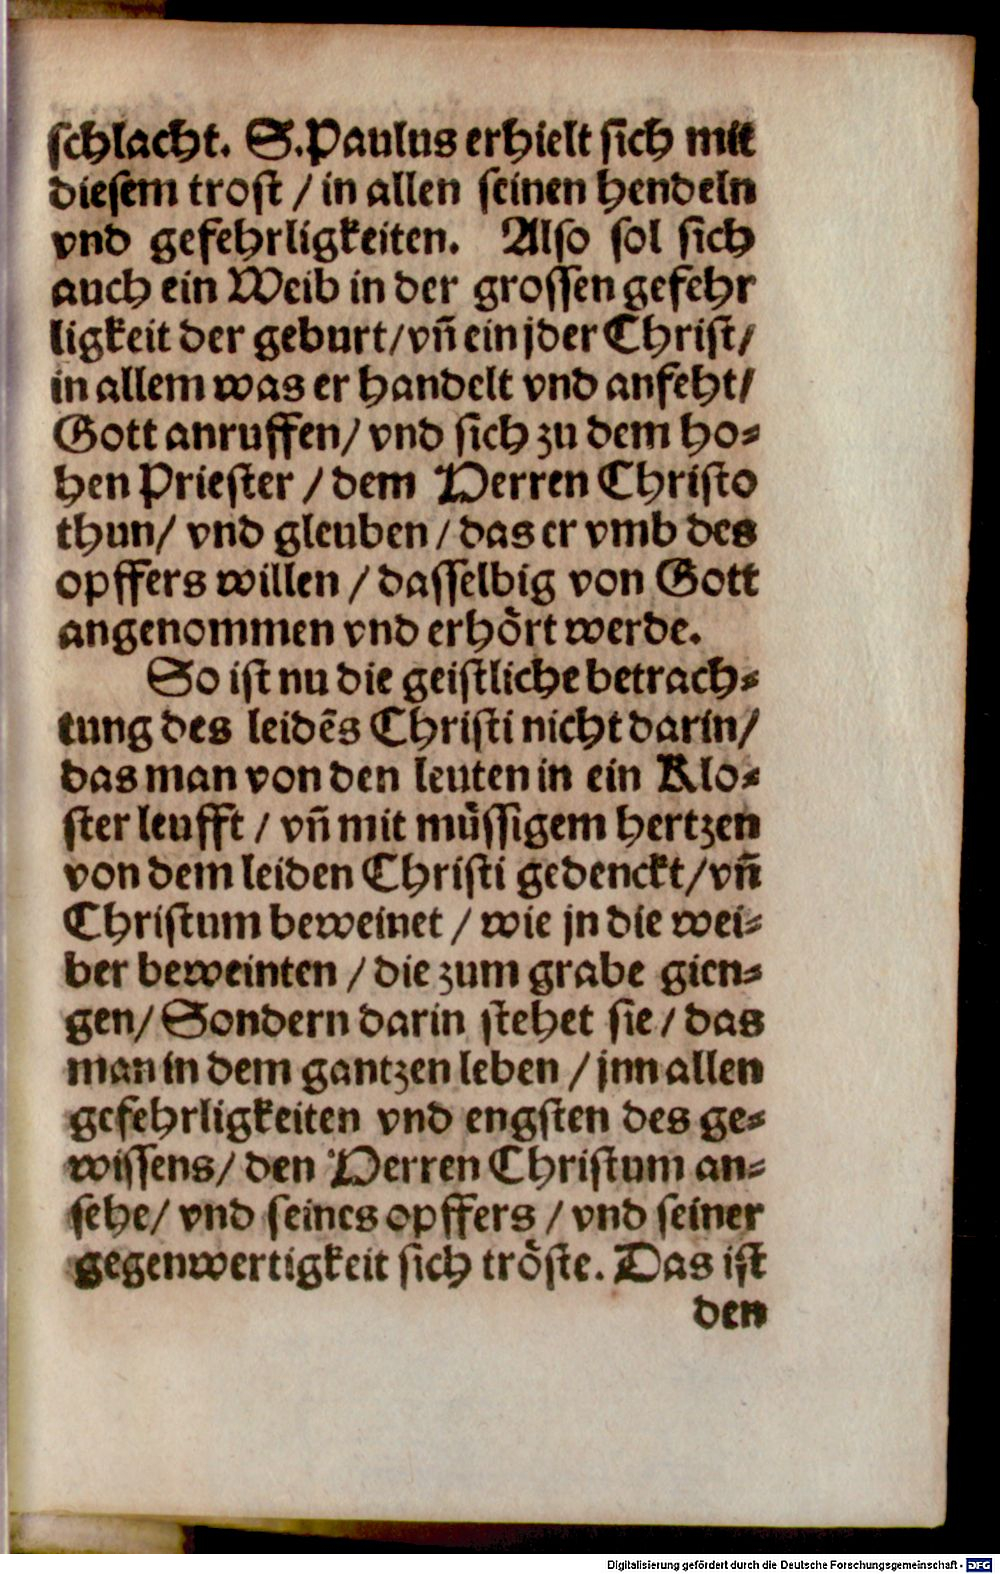 schlacht. S. Paulus erhielt sich mit
diesem trost / in allen seinen hendeln
vnd gefehrligkeiten. Also sol sich
auch ein Weib in der grossen gefehr
ligkeit der geburt / vñ ein jder Christ /
in allem was er handelt vnd anfeht /
Gott anruffen / vnd sich zu dem ho-
hen Priester / dem Herren Christo
thun / vnd gleuben / das er vmb des
opffers willen / dasselbig von Gott
angenommen vnd erhört werde.
So ist nu die geistliche betrach-
tung des leidēs Christi nicht darin /
das man von den leuten in ein Klo-
ster leufft / vñ mit müssigem hertzen
von dem leiden Christi gedenckt / vñ
Christum beweinet / wie jn die wei-
ber beweinten / die zum grabe gien-
gen / Sondern darin stehet sie / das
man in dem gantzen leben / jnn allen
gefehrligkeiten vnd engsten des ge-
wissens / den Herren Christum an-
sehe / vnd seines opffers / vnd seiner
gegenwertigkeit sich tröste. Das ist
den
Digitalisierung gefördert durch die Deutsche Forschungsgemeinschaft - DFG